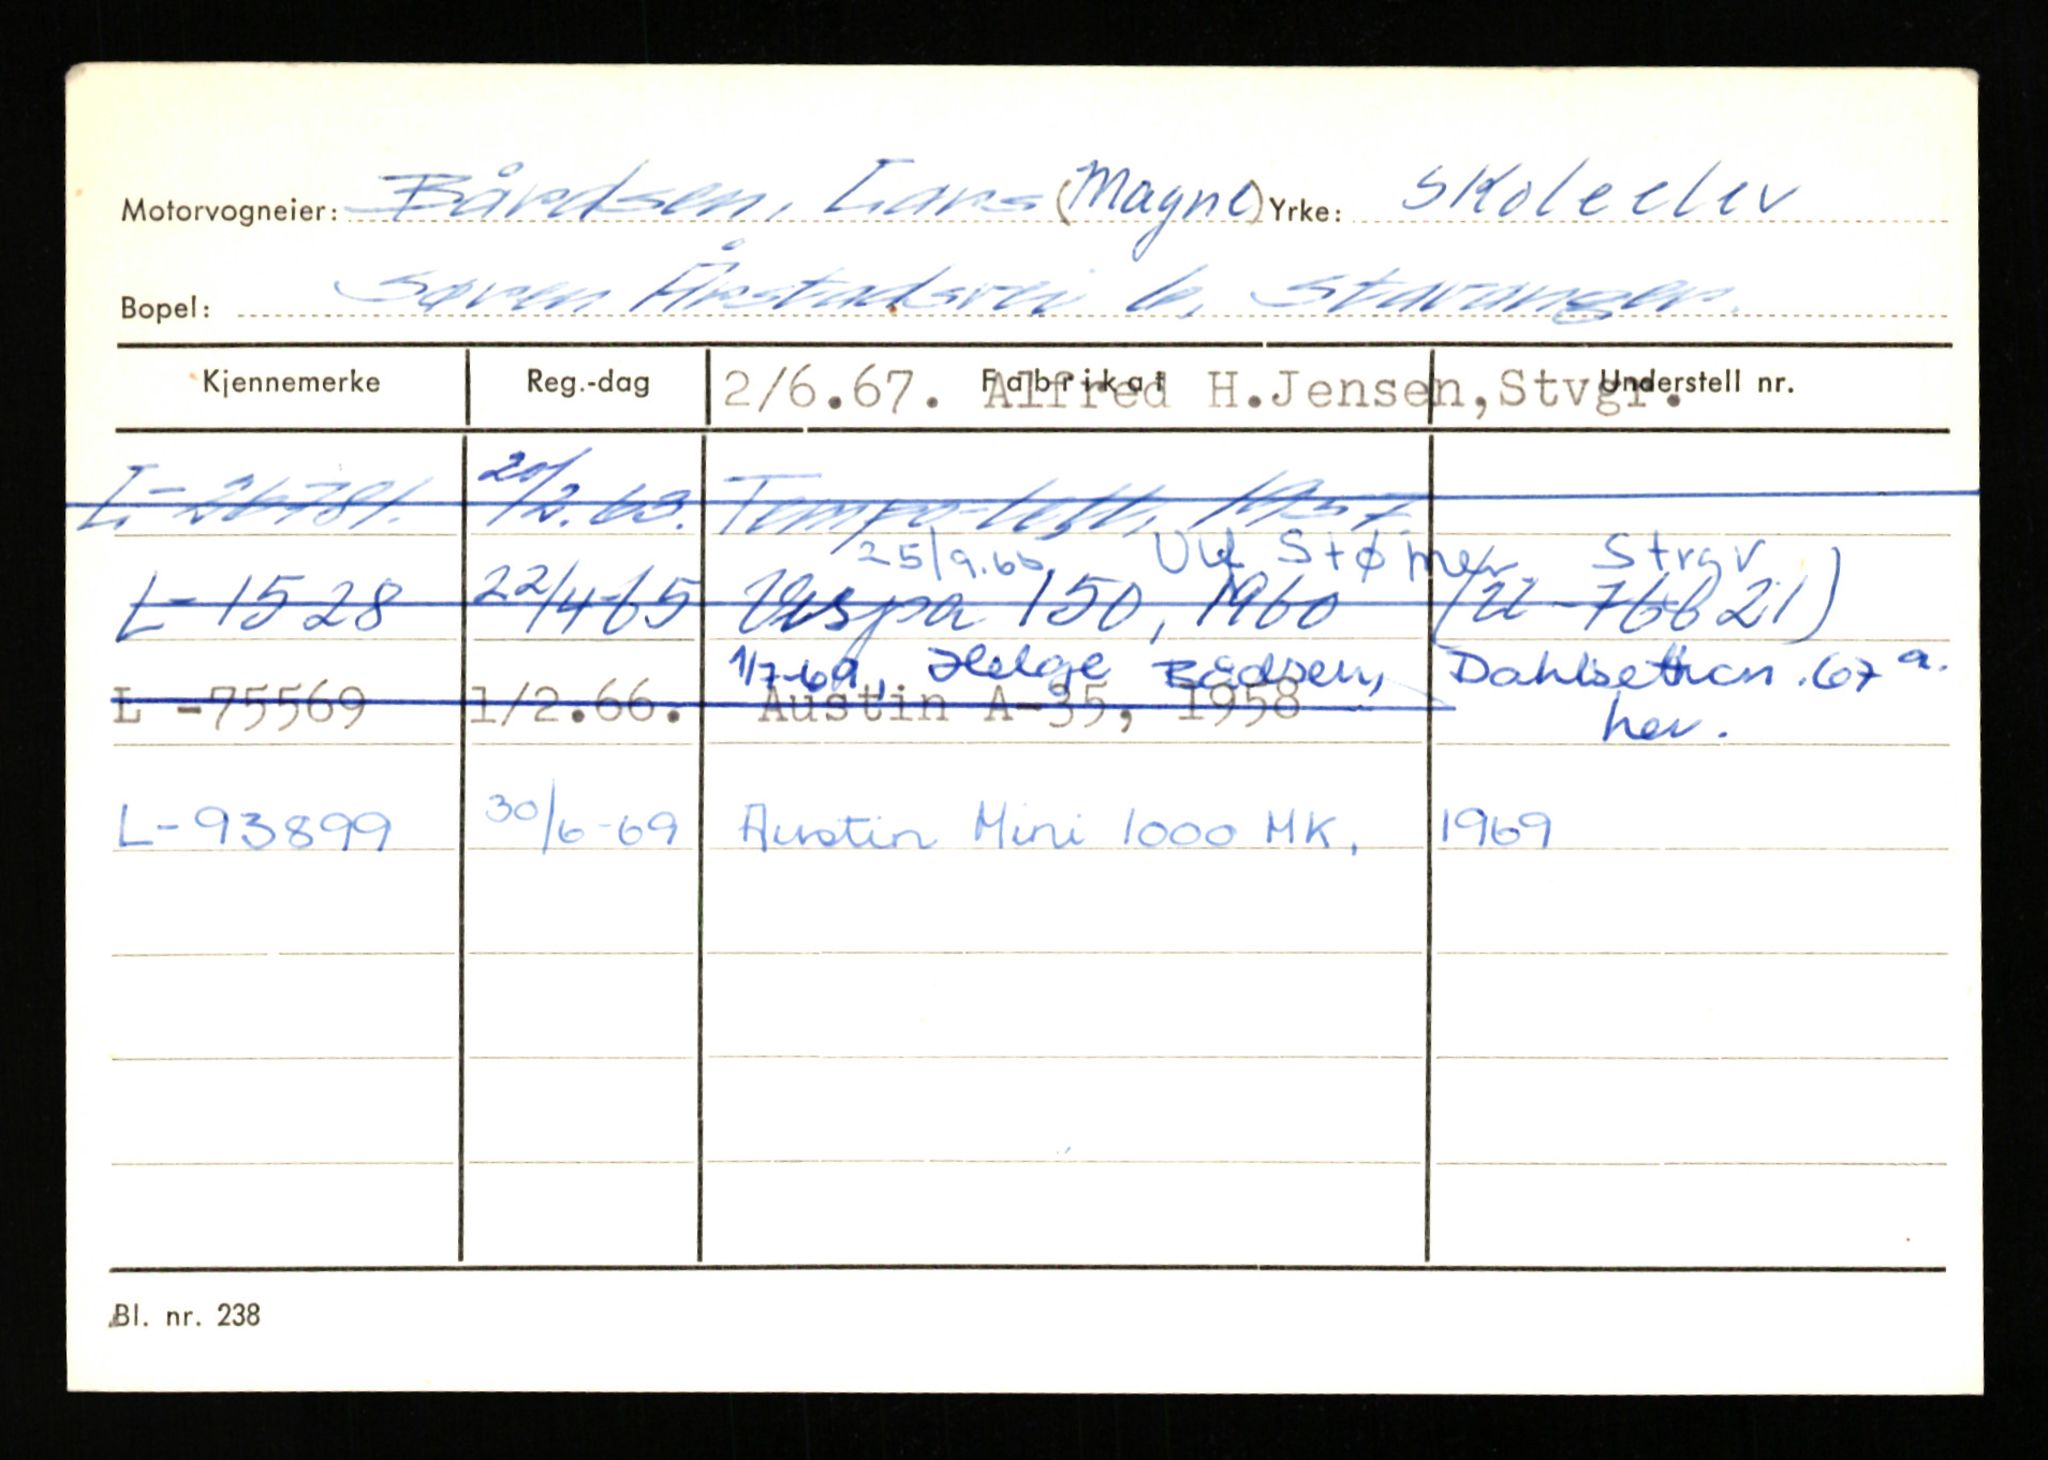 Motorvogneier: Bårdsen, Lars (Magne) Yrke: Skoleelev
Bopel: Søren Årstadsvei 6, Stavanger.
Kjennemerke Reg.-dag Fabrikat Understell nr.
2/6.67. Alfred H.Jensen,Stvgr.
L-26781. 20/2.63. Tempo-lett, 1957.
25/9.65. Ulf Stømer, Strgv
L-1528 22/4-65 Vespa 150, 1960 (U-76621)
1/7-69, Helge Bådsen, Dahlsettran.67 a.
her.
L -75569 1/2.66. Austin A-35, 1958
L-93899 30/6-69 Austin Mini 1000 MK, 1969
Bl. nr. 238